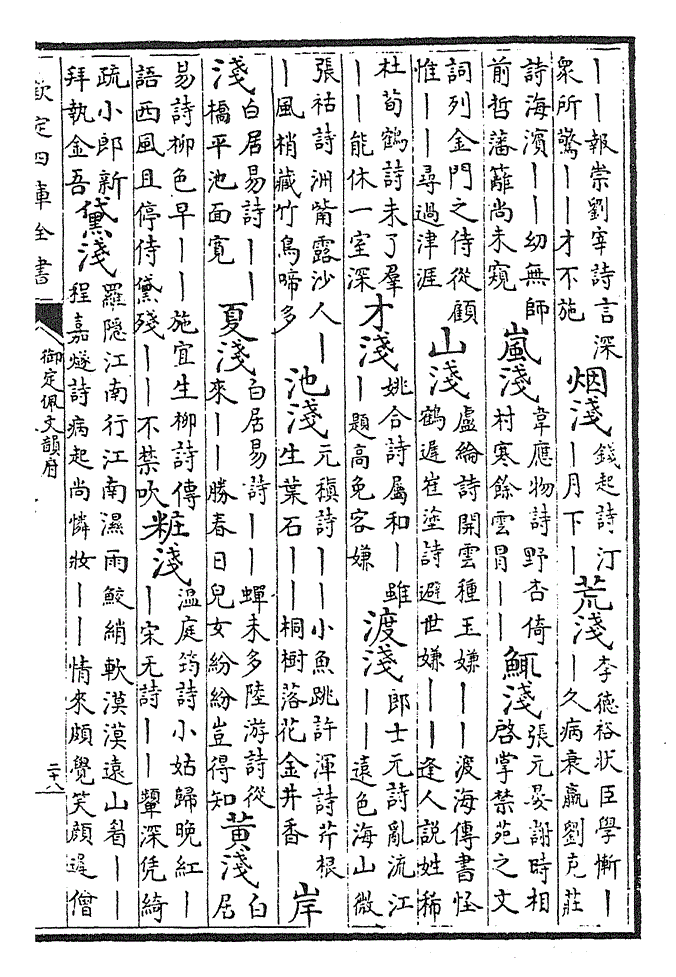 ｜｜報崇劉宰詩言深
衆所驚｜｜才不施
烟淺
錢起詩汀
｜月下｜
荒淺
李德裕狀臣學慚｜
｜久病衰羸劉克莊
詩海濱｜｜幼無師
前哲藩籬尚未窺
嵐淺
韋應物詩野杏倚
村寒餘雲冒｜｜
鯫淺
張元晏謝時相
啓掌禁苑之文
詞列金門之侍從顧
惟｜｜尋過津涯
山淺
盧綸詩開雲種玉嫌｜｜渡海傳書怪
鶴遲崔塗詩避世嫌｜｜逢人説姓稀
杜荀鶴詩未了羣
｜｜能休一室深
才淺
姚合詩屬和｜雖
｜題高免客嫌
渡淺
郎士元詩亂流江
｜｜遠色海山微
張祜詩洲觜露沙人｜
｜風梢藏竹鳥啼多
池淺
元稹詩｜｜小魚跳許渾詩芹根
生葉石｜｜桐樹落花金井香
岸
淺
白居易詩｜｜
橋平池面寛
夏淺
白居易詩｜｜蟬未多陸游詩從
來｜｜勝春日兒女紛紛豈得知
黃淺
白
居
易詩柳色早｜｜施宜生柳詩傳
語西風且停待黛殘｜｜不禁吹
粧淺
溫庭筠詩小姑歸晚紅｜
｜宋无詩｜｜顰深凭綺
疏小郎新
拜執金吾
黛淺
羅隱江南行江南濕雨鮫綃軟漠漠遠山眉｜｜
程嘉燧詩病起尚憐妝｜｜情來頗覺笑顔遲僧
欽定四庫全書
御定佩文韻府
二十八